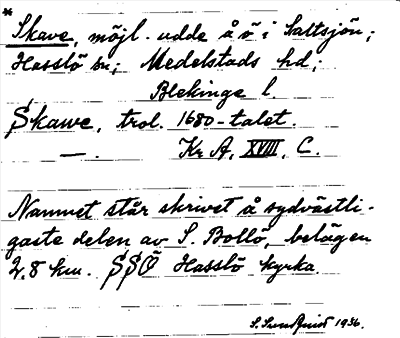 *
Skave, möjl. udde å ö i Saltsjön;
Hasslö sn; Medelstads hd;
Blekinge l.
Skawe, trol. 1680-talet.
—. Kr A, XVIII, C.
Namnet står skrivet å sydvästli-
gaste delen av S. Bollö, belägen
2,8 km. SSÖ Hasslö kyrka.
S. Sundquist 1936.